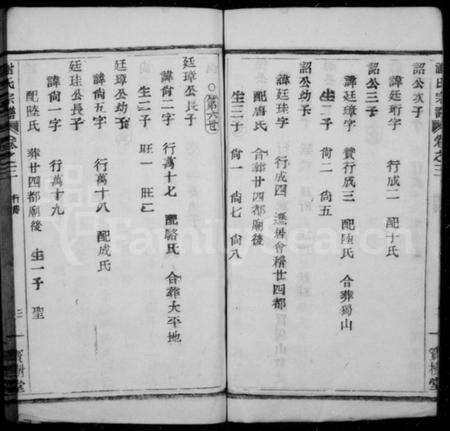 謝氏宗譜 卷之三
詔公次子
諱廷珩字 行成一 配于氏
詔公三子
諱廷璋字 贊行成三 配陳氏 合葬蜀山
生二子 尙二 尙五
詔公幼子
諱廷珪字 行成四 遷居會稽廿四都
配唐氏 合葬廿四都廟後
生三子 尙一 尙七 尙八
寶樹堂
○第六世
廷璋公長子
諱尙二字 行萬十七 配駱氏 合葬大平地
生二子 旺一 旺二
廷璋公幼子
諱尙五字 行萬十八 配成氏
廷珪公長子
諱尙一字 行萬十九
配陸氏 葬廿四都廟後 生一子 聖
謝氏宗譜 卷之三
寶樹堂
FamilySearch